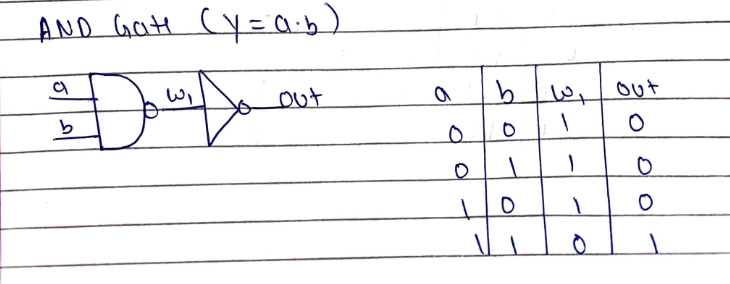 AND Gate (y = a·b)
a w₁ out
b
a b w₁ out
0 0 1 0
0 1 1 0
1 0 1 0
1 1 0 1